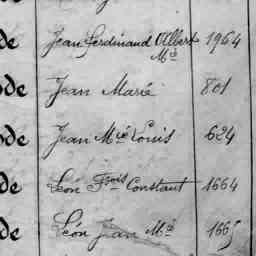 de Jean Ferdinand Albert 1964
Mie
de Jean Marie 801
de Jean Mie Louis 624
de Léon Frois Constant 1664
de Léon Jean Mie 1665